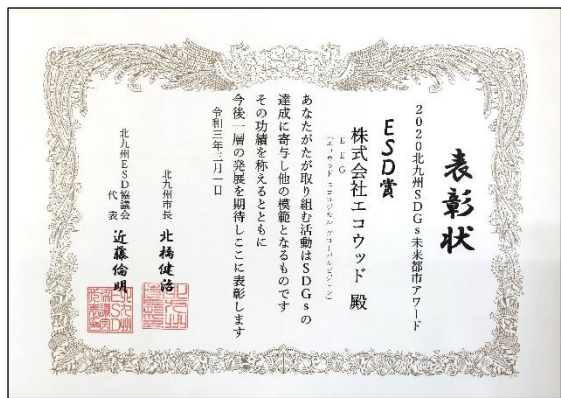 表彰状
2020北九州SDGs未来都市アワード
ESD賞
株式会社エコウッド 殿
EEG
(エコウッド エコロジカル グローバルビジョン)
あなたがたが取り組む活動はSDGsの
達成に寄与し他の模範となるものです
その功績を称えるとともに
今後一層の発展を期待しここに表彰します
令和三年三月一日
北九州市長 北橋健治
北九州ESD協議会
代表 近藤倫明